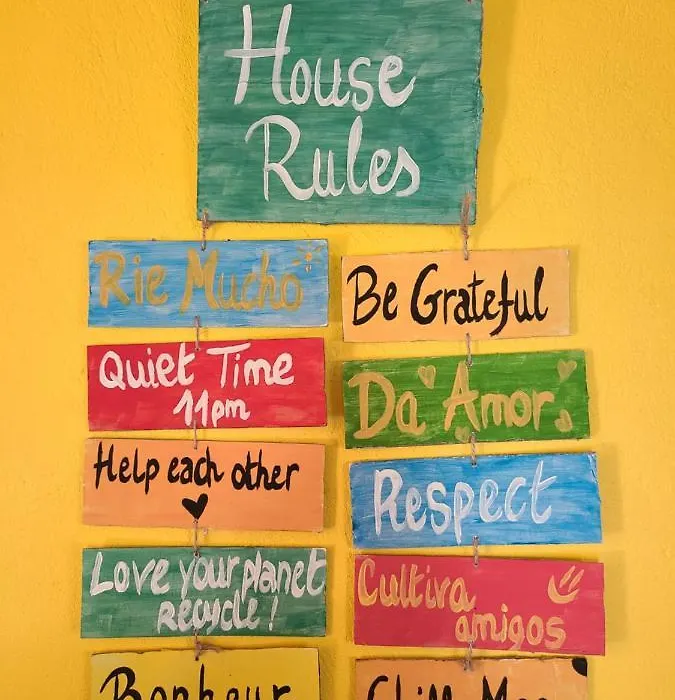 House
Rules
Rie Mucho
Quiet Time
11pm
Help each other
Love your planet
recycle!
Bonheur
Be Grateful
Da Amor
Respect
Cultiva
amigos
Chill Mas